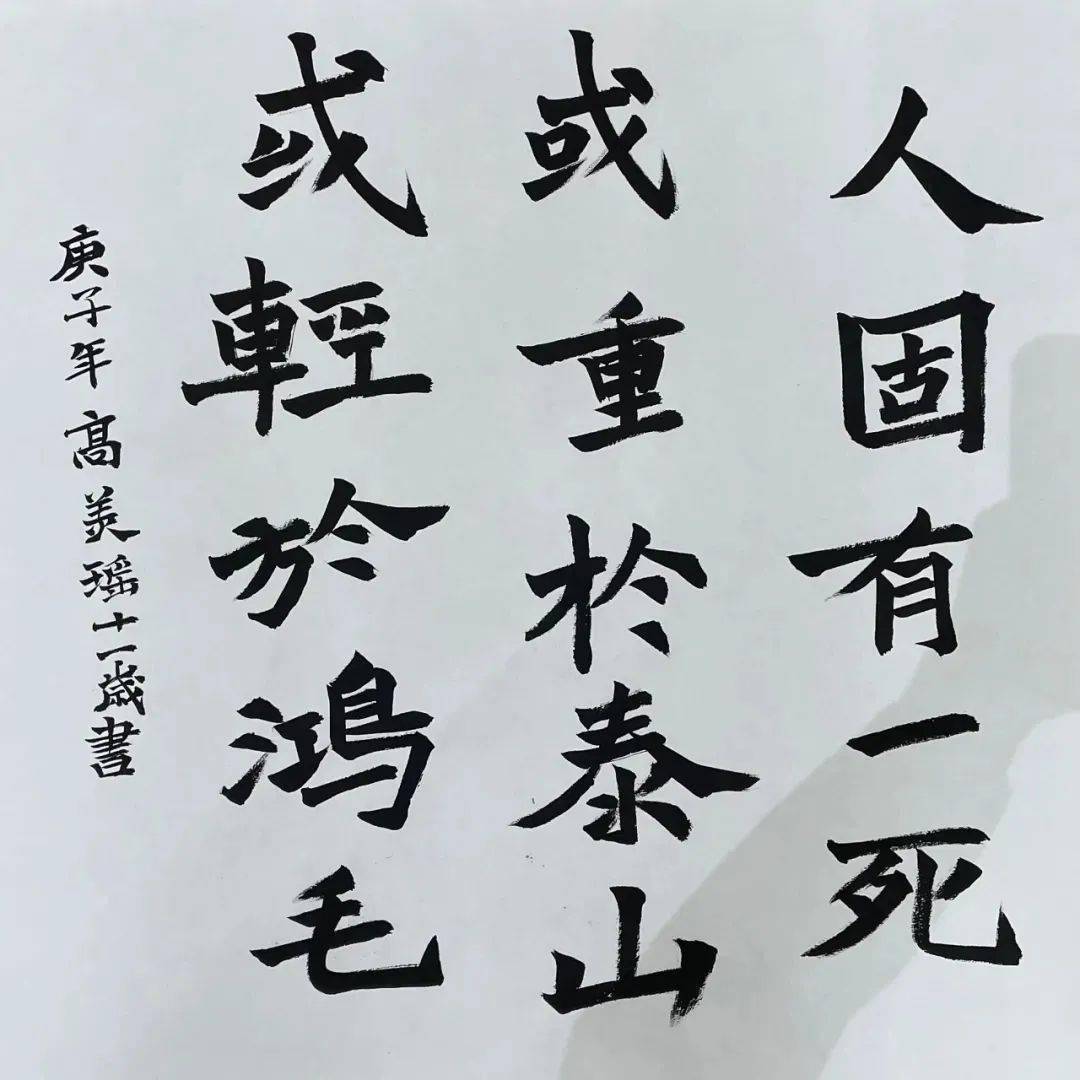 人固有一死
或重於泰山
或輕於鴻毛
庚子年高美瑶十一歲書